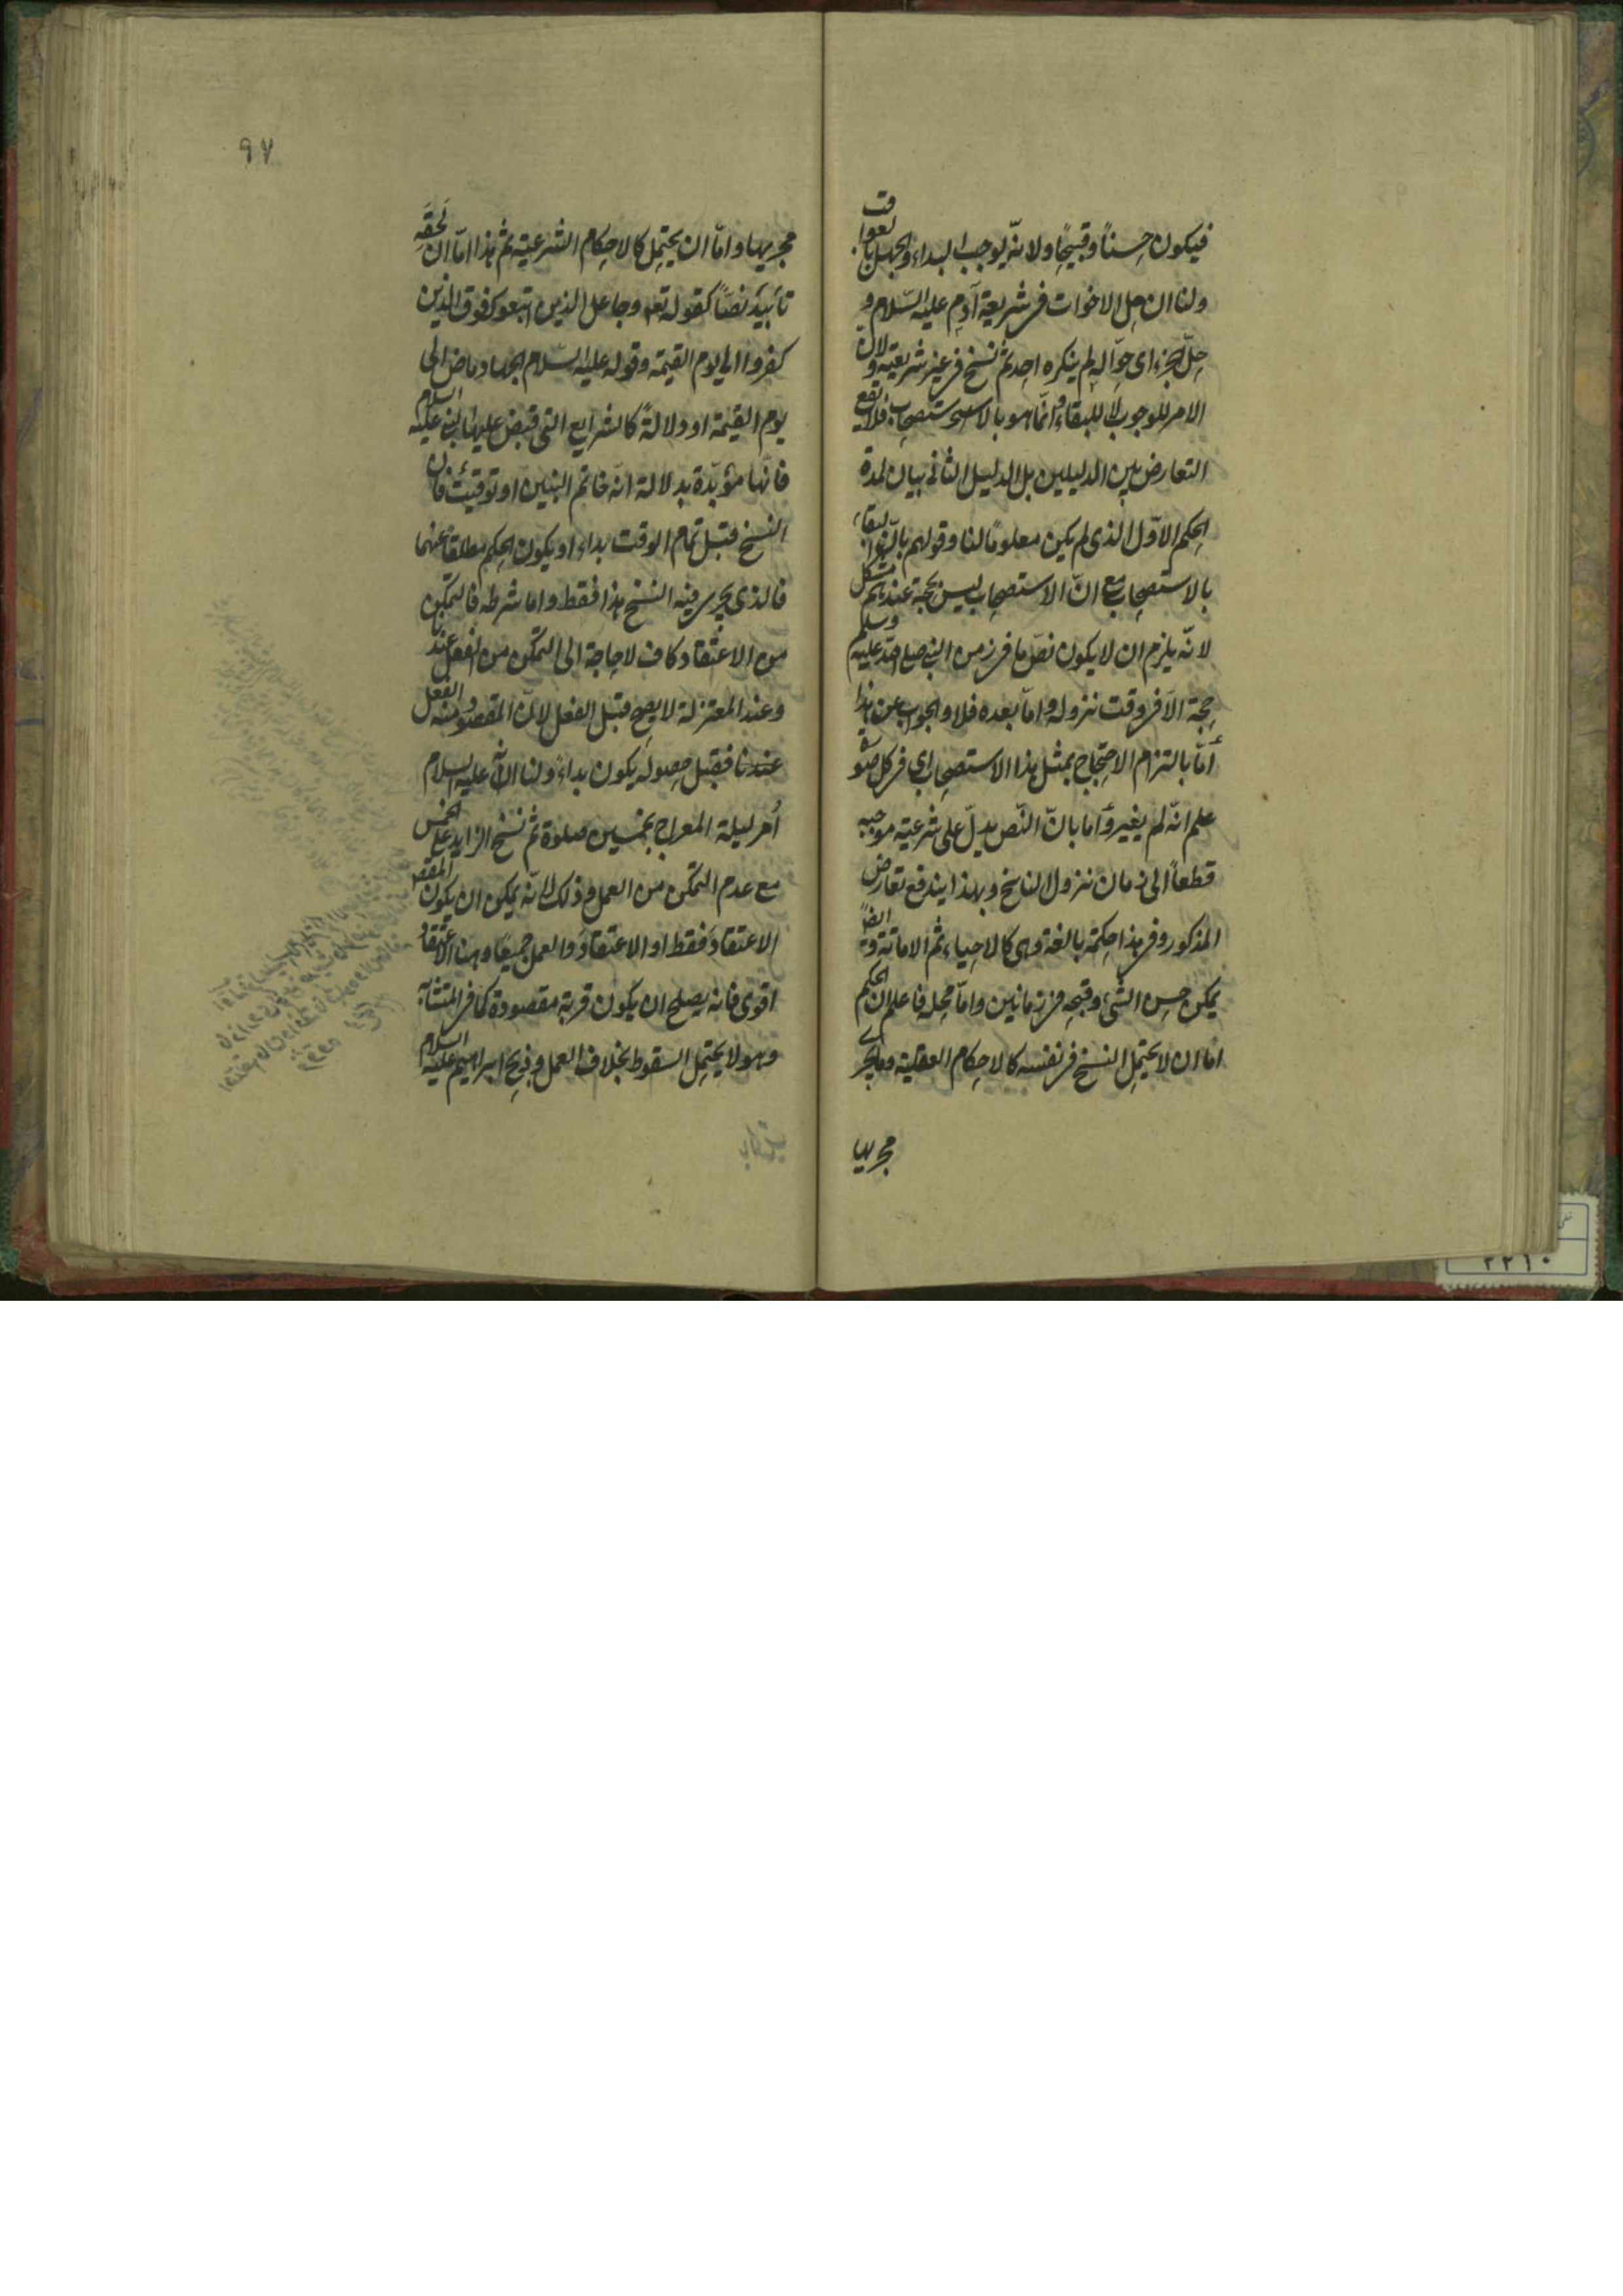 فيكون حسناً وقبيحاً ولانّه يوجب البداء والجهل بالعواقب
ولنا ان حل الاخوات فى شريعة آدم عليه السّلام و
حلّ الجزء اى حوّا له لم ينكره احد ثم نسخ فى غير شريعته ولان
الامر للوجوب لا للبقاء وانّما هو بالاستصحاب فلا يقع
التعارض بين الدليلين بل الدليل الثانى بيان لمدة
الحكم الاوّل الذى لم يكن معلوماً لنا وقولهم بانّ البقاء
بالاستصحاب مع انّ الاستصحاب ليس بحجة عندهم مشكل
لانّه يلزم ان لا يكون نصّ ما فى زمن النبى صلى الله عليه وسلم
حجة الا فى وقت نزوله واما بعده فلا والجواب عن هذا
أمّا بالتزام الاحتجاج بمثل هذا الاستصحاب اى فى كل صورة
علم انّه لم يغير وأما بانّ النّص يدلّ على شرعية موجبه
قطعاً الى زمان نزول الناسخ وبهذا يندفع تعارض
المذكور وفى هذا حكمة بالغة وهى كالاحياء ثم الاماتة وايضاً
يمكن حسن الشئ وقبحه فى زمانين وامّا محله فاعلم ان الحكم
اما ان لا يحتمل النسخ فى نفسه كالاحكام العقلية وما يجرى
مجريها
٩٧
مجريها وامّا ان يحتمل كالاحكام الشرعية ثم هذا امّا ان لحقه
تأبيد نصّاً كقوله تعه وجاعل الذين اتبعوك فوق الذين
كفروا الى يوم القيمة وقوله عليه السّلام الجهاد ماض الى
يوم القيمة او دلالة كالشرايع التى قبض عليها النبى عليه السلام
فانّها مؤبّدة بدلالة انّه خاتم النبيين او توقيت فان
النسخ قبل تمام الوقت بداء او يكون الحكم مطلقاً عنهما
فالذى يجرى فيه النسخ هذا فقط واما شرطه فالتمكن
من الاعتقاد كاف لا حاجة الى التمكن من الفعل عندنا
وعند المعتزلة لا يصح قبل الفعل لانّ المقصود منه الفعل
عندنا فقبل حصوله يكون بداءً ولنا انّه عليه السلام
أمر ليلة المعراج بخمسين صلوة ثم نسخ الزايد على الخمس
مع عدم التمكن من العمل وذلك لانّه يمكن ان يكون المقصد
الاعتقاد فقط او الاعتقاد والعمل جميعاً وهنا الاعتقاد
اقوى فانه يصلح ان يكون قربة مقصودة كما فى المتشابه
وهو لا يحتمل السقوط بخلاف العمل وذبح ابراهيم عليه السلام